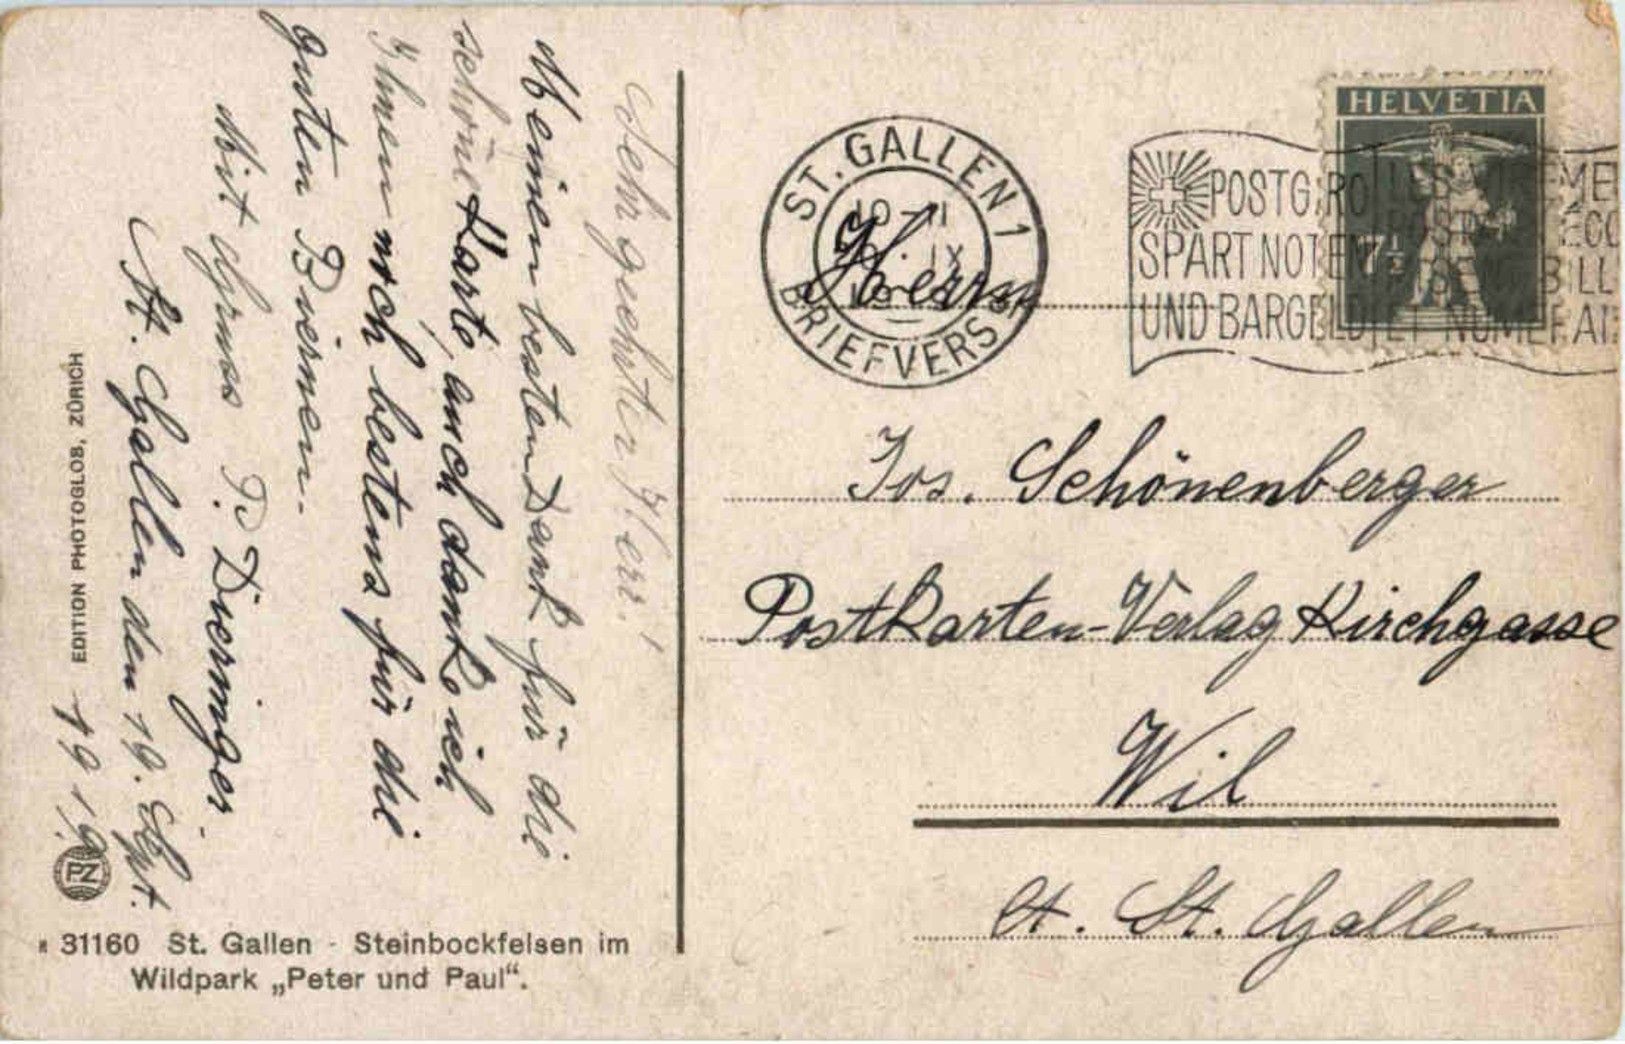 Sehr geehrter Herr!
Meinen besten Dank für die
schöne Karte, auch danke ich
Ihnen noch bestens für die
guten Biernen.
Mit Gruss Dierminger.
St. Gallen den 19. Sept.
1919.
EDITION PHOTOGLOB, ZÜRICH
PZ
31160 St. Gallen - Steinbockfelsen im
Wildpark „Peter und Paul“.
HELVETIA
7½
ST. GALLEN 1
IX
BRIEFVERS
POSTGIRO
SPART NOTEN
UND BARGELD ET NUMERAI
Herrn
Jos. Schönenberger
Postkarten-Verlag Kirchgasse
Wil
Ct. St. Gallen